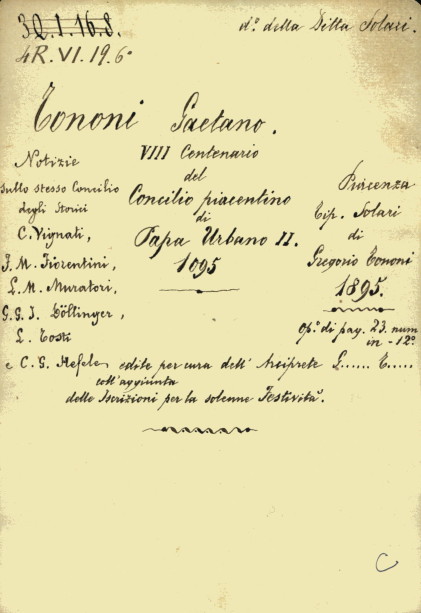 3Q.1.16.8.
d.º della Ditta Solari.
4R.VI.19.6º
Tononi Gaetano.
Notizie
sullo stesso Concilio
degli Storici
C. Vignati,
F. M. Fiorentini,
L. M. Muratori,
G. G. I. Döllinger,
L. Tosti
VIII Centenario
del
Concilio piacentino
di
Papa Urbano II.
1095
Piacenza
Tip. Solari
di
Gregorio Tononi
1895.
Op.º di pag. 23. num
in - 12º
e C. G. Hefele, edite per cura dell' Arciprete G...... T......
coll' aggiunta
delle Iscrizioni per la solenne Festività.
C